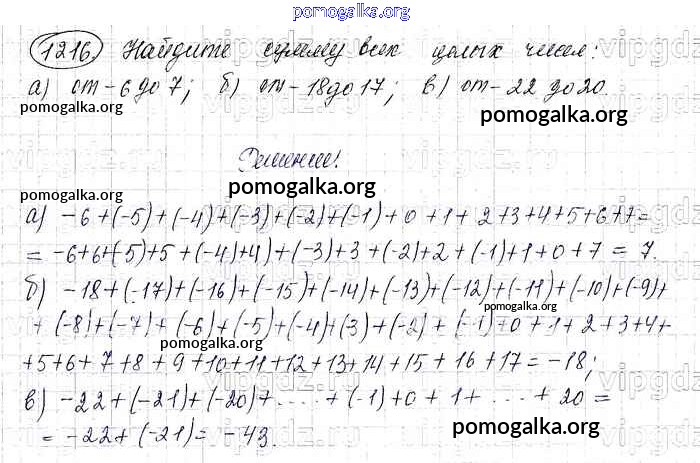 pomogalka.org
1216. Найдите сумму всех целых чисел:
а) от -6 до 7; б) от -18 до 17; в) от -22 до 20.
pomogalka.org pomogalka.org
Решение:
pomogalka.org pomogalka.org pomogalka.org
а) -6+(-5)+(-4)+(-3)+(-2)+(-1)+0+1+2+3+4+5+6+7=
= -6+6+(-5)+5+(-4)+4)+(-3)+3+(-2)+2+(-1)+1+0+7 = 7.
б) -18+(-17)+(-16)+(-15)+(-14)+(-13)+(-12)+(-11)+(-10)+(-9)+
pomogalka.org
+(-8)+(-7)+(-6)+(-5)+(-4)+(3)+(-2)+(-1)+0+1+2+3+4+
+5+6+7+8+9+10+11+12+13+14+15+16+17=-18;
в) -22+(-21)+(-20)+...+(-1)+0+1+...+20=
= -22+(-21)=-43.
pomogalka.org pomogalka.org